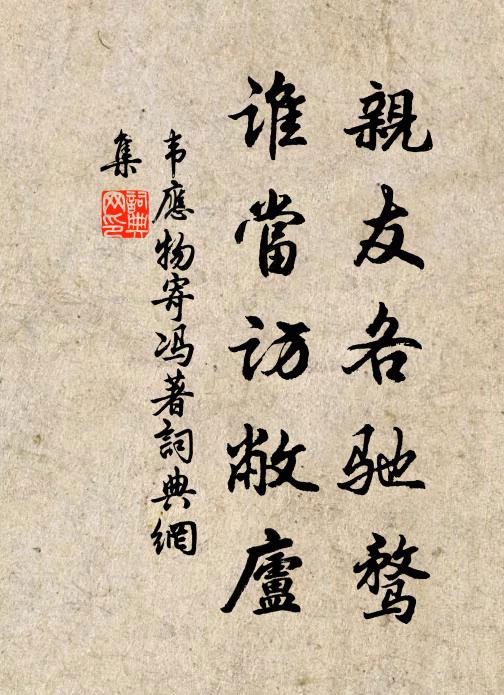 親友各驰鹜
谁當访敝廬
韦應物寄冯著詞典網
集
詞典
网印